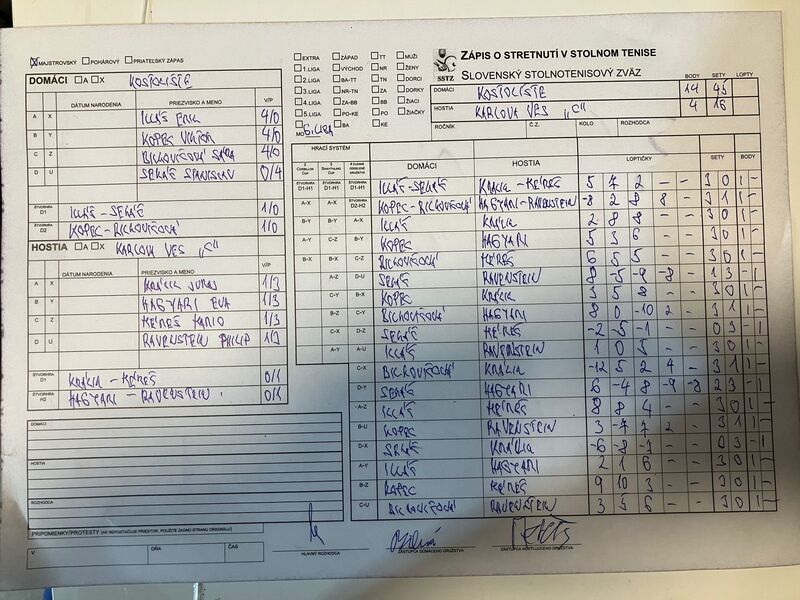 MAJSTROVSKÝ POHÁROVÝ PRIATEĽSKÝ ZÁPAS
DOMÁCI A X KOSTOLIŠTE
DÁTUM NARODENIA PRIEZVISKO A MENO V/P
A X ILLÁŠ ERIK 4/0
B Y KOPEC VIKTOR 4/0
C Z BICHOVIČSOVÁ SÁRA 4/0
D U SEKÁČ STANISLAV 0/4
ŠTVORHRA D1 ILLÁŠ - SEKÁČ 1/0
ŠTVORHRA D2 KOPEC - 1/0
HOSTIA A X KARLOVA VES "C"
DÁTUM NARODENIA PRIEZVISKO A MENO V/P
A X KRÁLIK JURAJ 1/3
B Y HAGYARI EVA 1/3
C Z MARIO 1/3
D U RAVENSTEIN PHILIP 1/3
ŠTVORHRA D1 0/1
ŠTVORHRA H2 HAGYARI - RAVENSTEIN 0/1
DOMÁCI
HOSTIA
ROZHODCA
PRIPOMIENKY/PROTESTY (AK NEPOSTAČUJE PRIESTOR, POUŽITE ZADNÚ STRANU ORIGINÁLU)
V DŇA ČAS
HLAVNÝ ROZHODCA
ZÁSTUPCA DOMÁCEHO DRUŽSTVA
ZÁSTUPCA HOSŤUJÚCEHO DRUŽSTVA
EXTRA ZÁPAD TT MUŽI
1.LIGA VÝCHOD NR ŽENY
2.LIGA BA-TT TN DORCI
3.LIGA NR-TN ZA DORKY
4.LIGA ZA-BB BB ŽIACI
5.LIGA PO-KE PO ŽIAČKY
MO 6.LIGA BA KE
SSTZ
ZÁPIS O STRETNUTÍ V STOLNOM TENISE
SLOVENSKÝ STOLNOTENISOVÝ ZVÄZ
BODY SETY LOPTY
DOMÁCI KOSTOLIŠTE 14 45
HOSTIA KARLOVA VES "C" 4 16
ROČNÍK Č.Z. KOLO ROZHODCA
HRACÍ SYSTÉM
DOMÁCI HOSTIA LOPTIČKY SETY BODY
ŠTVORHRA D1-H1 ŠTVORHRA D1-H1 ŠTVORHRA D1-H1 ILLÁŠ-SEKÁČ 5 7 2 - - 3 0 1 -
A-X A-X ŠTVORHRA D2-H2 HAGYARI-RAVENSTEIN -8 2 8 8 - 3 1 1 -
B-Y B-Y A-X ILLÁŠ 2 8 8 - - 3 0 1 -
A-Y C-Z B-Y KOPEC HAGYARI 5 3 6 - - 3 0 1 -
B-X B-X C-Z 6 5 5 - - 3 0 1 -
A-Z D-U SEKÁČ RAVENSTEIN 8 -5 -9 -8 - 1 3 - 1
C-Y B-X KOPEC 3 5 8 - - 3 0 1 -
B-Z C-Y HAGYARI 8 0 -10 2 - 3 1 1 -
C-X D-Z SEKÁČ -2 -5 -1 - - 0 3 - 1
A-Y A-U ILLÁŠ RAVENSTEIN 1 0 3 - - 3 0 1 -
C-X -12 5 2 4 - 3 1 1 -
D-Y SEKÁČ HAGYARI 6 -4 8 -9 -8 2 3 - 1
A-Z ILLÁŠ 8 8 4 - - 3 0 1 -
B-U KOPEC RAVENSTEIN 3 -7 7 2 - 3 1 1 -
D-X SEKÁČ -6 -8 - - - 1
A-Y ILLÁŠ HAGYARI 2 1 6 - - 3 0 1 -
B-Z KOPEC 9 10 3 - - 3 0 1 -
C-U RAVENSTEIN 3 5 6 - - 3 0 1 -